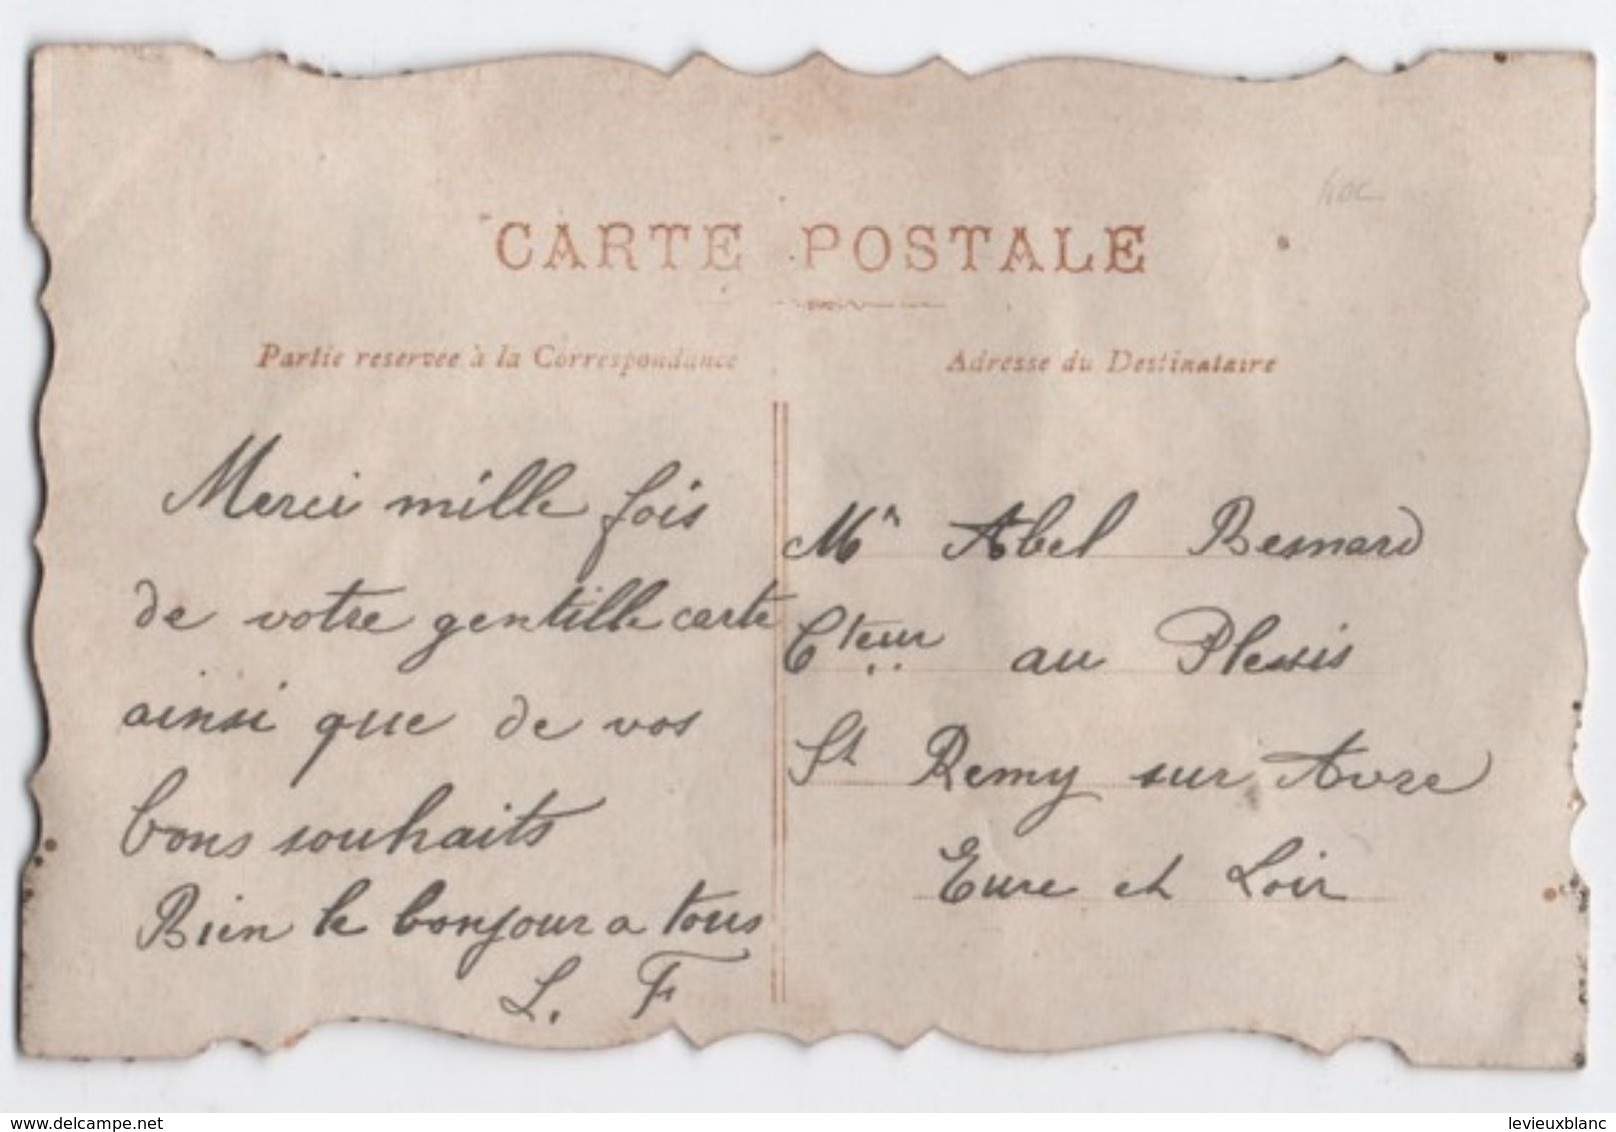 CARTE POSTALE
Partie reservée à la Correspondance
Adresse du Destinataire
Merci mille fois
de votre gentille carte
ainsi que de vos
bons souhaits
Bien le bonjour a tous
L. F
Mr Abel Besnard
Cteur au Plessis
St Remy sur Avre
Eure et Loir
delcampe.net
levieuxblanc